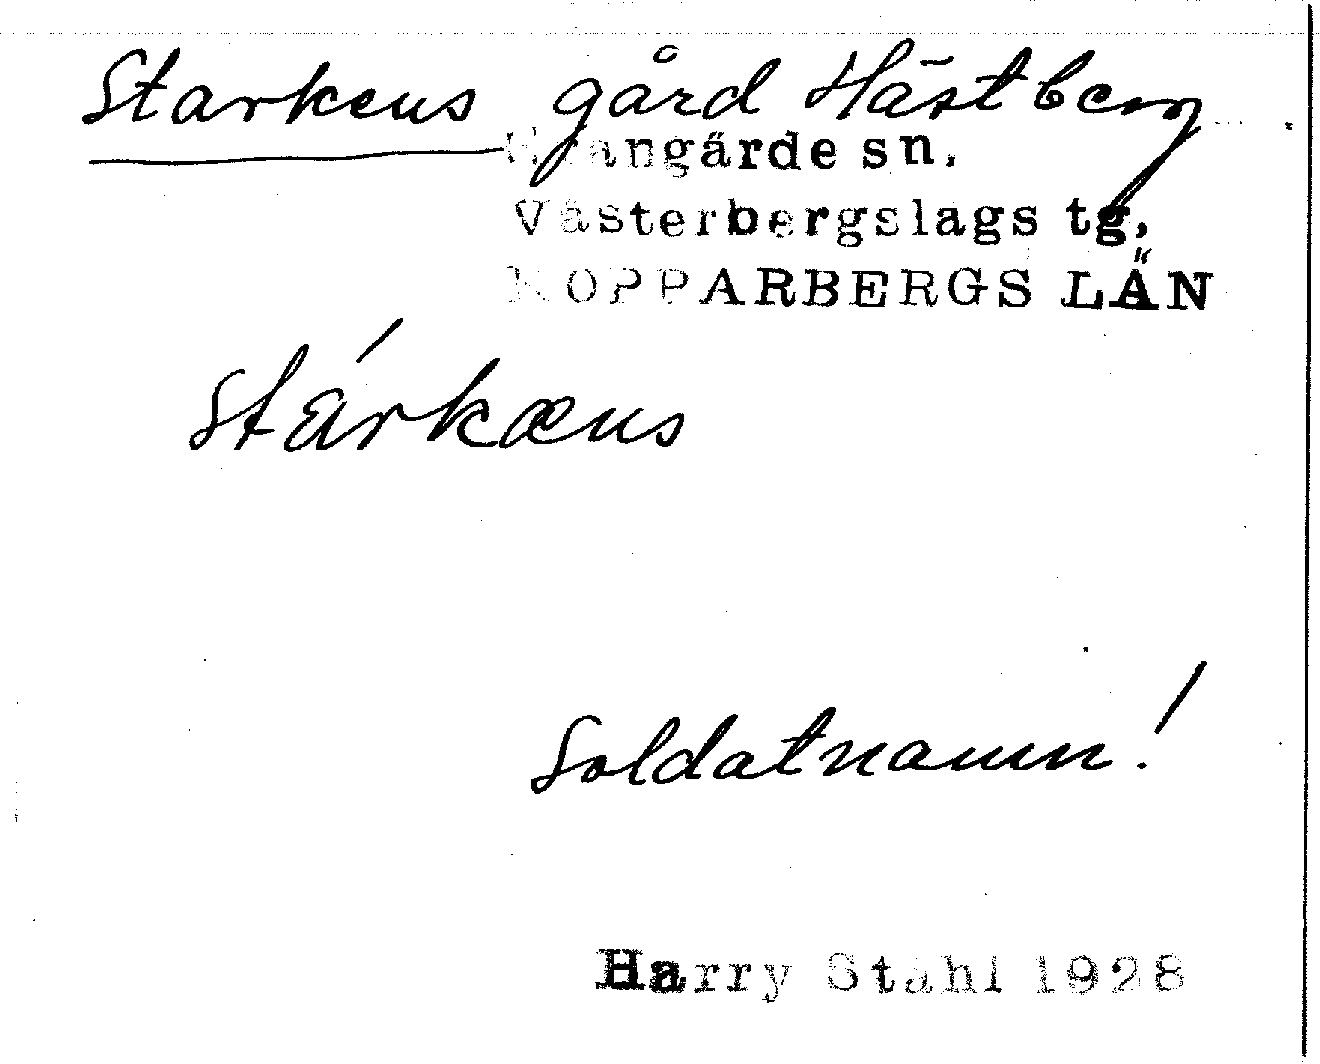 Starkens gård Hästberg
Grangärde sn.
Västerbergslags tg,
KOPPARBERGS LÄN
stárkæns
Soldatnamn!
Harry Ståhl 1928